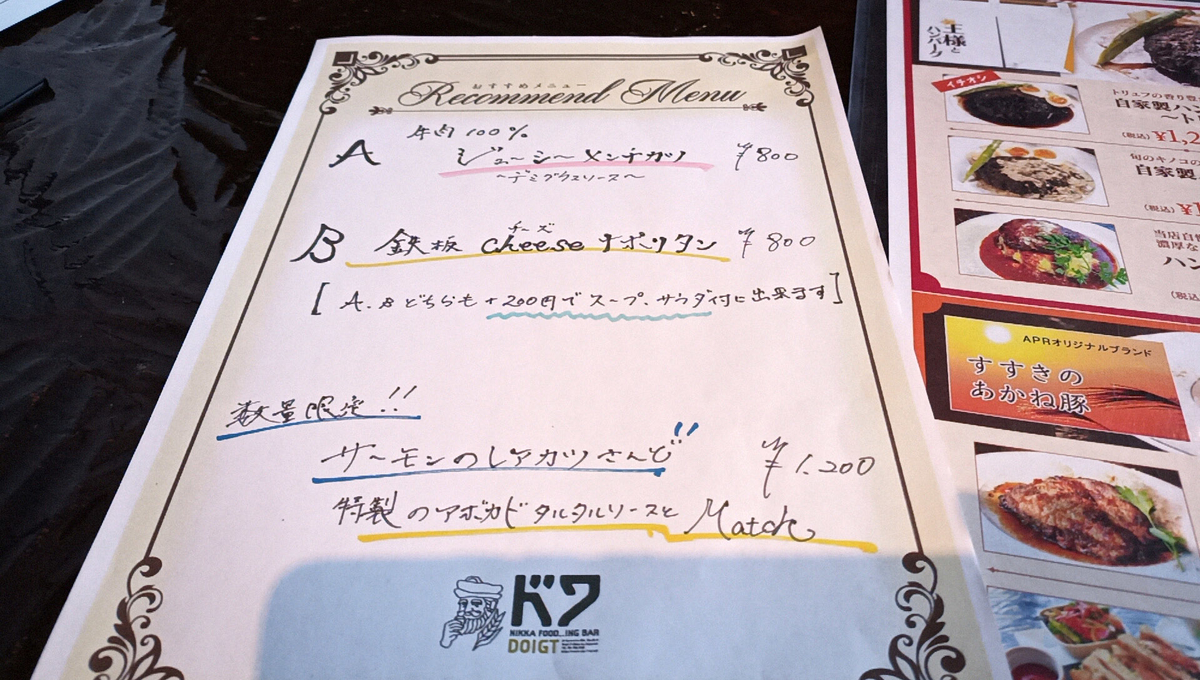 おすすめメニュー
Recommend Menu
牛肉100%
A ジューシーメンチカツ ¥800
〜デミグラスソース〜
チーズ
B 鉄板 cheese ナポリタン ¥800
[A.Bどちらも+200円でスープ、サラダ付に出来ます]
数量限定!!
サーモンのレアカツさんど!! ¥1.200
特製のアボカドタルタルソースとMatch
ドワ
NIKKA FOOD...ING BAR
DOIGT
王様と
ハンバーグ
イチオシ
トリュフの香り
自家製ハン
〜ト
(税込) ¥1,
旬のキノコの
自家製
(税込) ¥1
当店自
濃厚な
ハン
(税込)
APRオリジナルブランド
すすきの
あかね豚